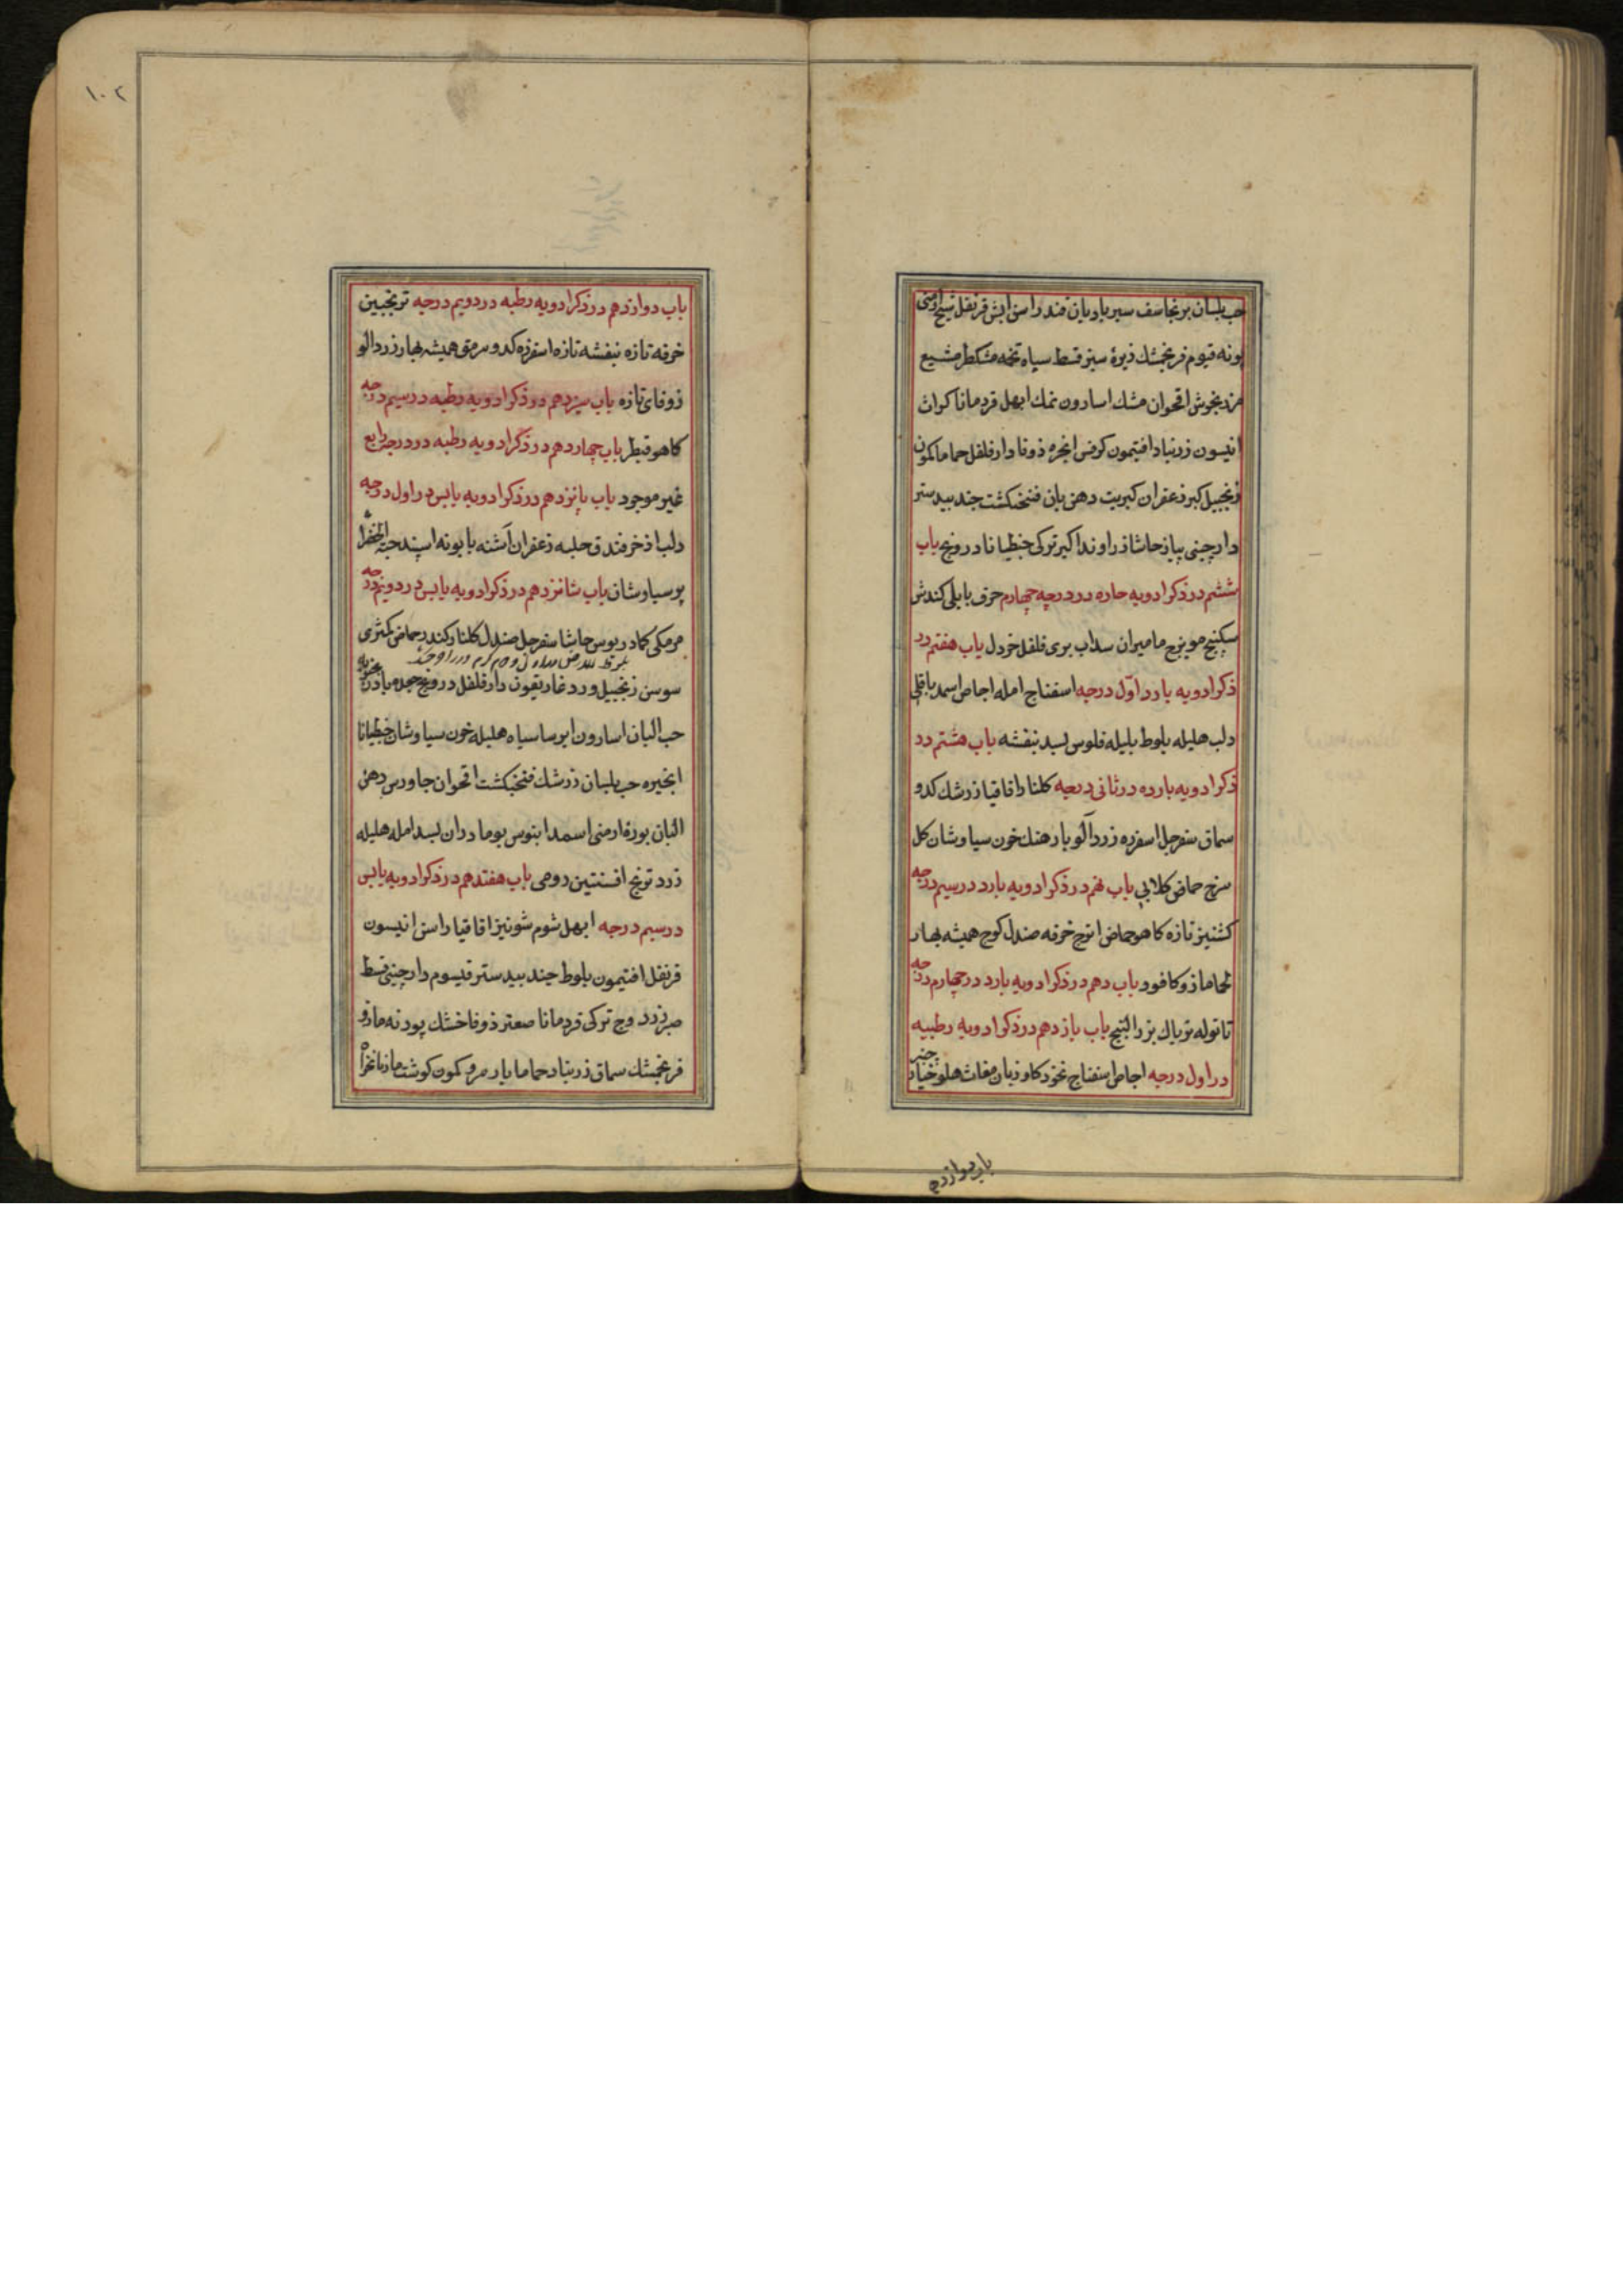 حب بلسان برنجاسف سیر بادیان قند راسن ابش قرنفل شیح ارمنی
پونه قیوم فرنجشك زیرهٔ سبز قسط سیاه تخمه مشکطرمشیع
مرزنجوش اقحوان مشك اسارون نمك ابهل قردمانا کراث
انیسون زرنباد افتیمون کرفس انجره زوفا دارفلفل حماما کمون
زنجبیل کبر زعفران کبریت دهن بان فنجنکشت جندبیدستر
دارچینی پیاز حاشا زراوند اکیر ترکی جنطیانا درونج باب
ششم در ذکر ادویه حاره در درجه چهارم حرف بابلی کندش
سکبنج مویزج مامیران سداب بری فلفل خردل باب هفتم در
ذکر ادویه بارد اوّل درجه اسفناج امله اجاص اسمد باقلی
دلب هلیله بلوط بلیله فلوس بسد بنفشه باب هشتم در
ذکر ادویه بارده در ثانی درجه کلنار اقاقیا زرشك کدو
سماق سفرجل اسفرزه زردآلو بارهنك خون سیاوشان کل
سرخ حماض کلابی باب نهم در ذکر ادویه بارد در سیم درجه
کشنیز تازه کاهو حماض اترج خرفه صندل کوج همیشه بهار
مازو کافور باب دهم در ذکر ادویه بارد در چهارم درجه
تاتوله تریاك بزرالبنج باب یازدهم در ذکر ادویه رطبیه
در اول درجه اجاص اسفناج نخود کاوزبان مغاث هلو خیارچنبر
باب دوازدهم
۱۰۲
باب دوازدهم در ذکر ادویه رطبه در دویم درجه ترنجبین
خرفه تازه بنفشه تازه اسفرزه کدو سرمق همیشه بهار زردالو
زوفای تازه باب سیزدهم در ذکر ادویه رطبه در سیم درجه
کاهو قیطر باب چهاردهم در ذکر ادویه رطبه در درجه رابع
غیر موجود باب پانزدهم در ذکر ادویه یابس در اول درجه
دلب اذخر فندق حلبه زعفران آشنه بابونه اسپند حبة الخضرا
پوسیاوشان باب شانزدهم در ذکر ادویه یابس در دویم درجه
مرمکی کمادریوس حاشا سفرجل صندل کلنار کندر حماض کمثری
سوسن زنجبیل ورد غاریقون دارفلفل درونج جعده بادرنجبویه
حب البان اسارون ایرسا سیاه هلیله خون سیاوشان جنطیانا
انجیره حب بلسان زرشك فنجنکشت اقحوان جاورس دهن
البان بوره ارمنی اسمد ابنوس بومادران بسد امله هلیله
زرد ترنج افسنتین رومی باب هفتدهم در ذکر ادویه یابس
در سیم درجه ابهل شوم شونیز اقاقیا راسن انیسون
قرنفل افتیمون بلوط جندبیدستر قیسوم دارچینی قسط
صبر زرد وج ترکی قردمانا صعتر زوفا خشك پودنه مازو
فرنجمشك سماق زرنباد حماما بارمرو کمون کوشت مازنانخواه